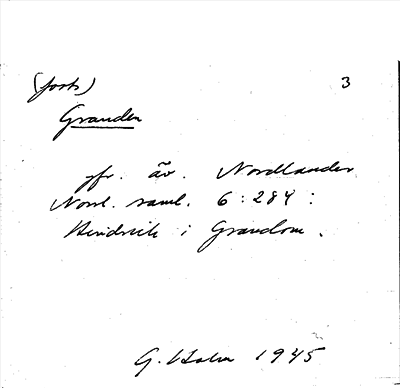 (forts) 3
Granden
jfr. äv. Nordlander
Norrl. saml. 6:284:
Hindrik i Grandom.
G. Holm 1945